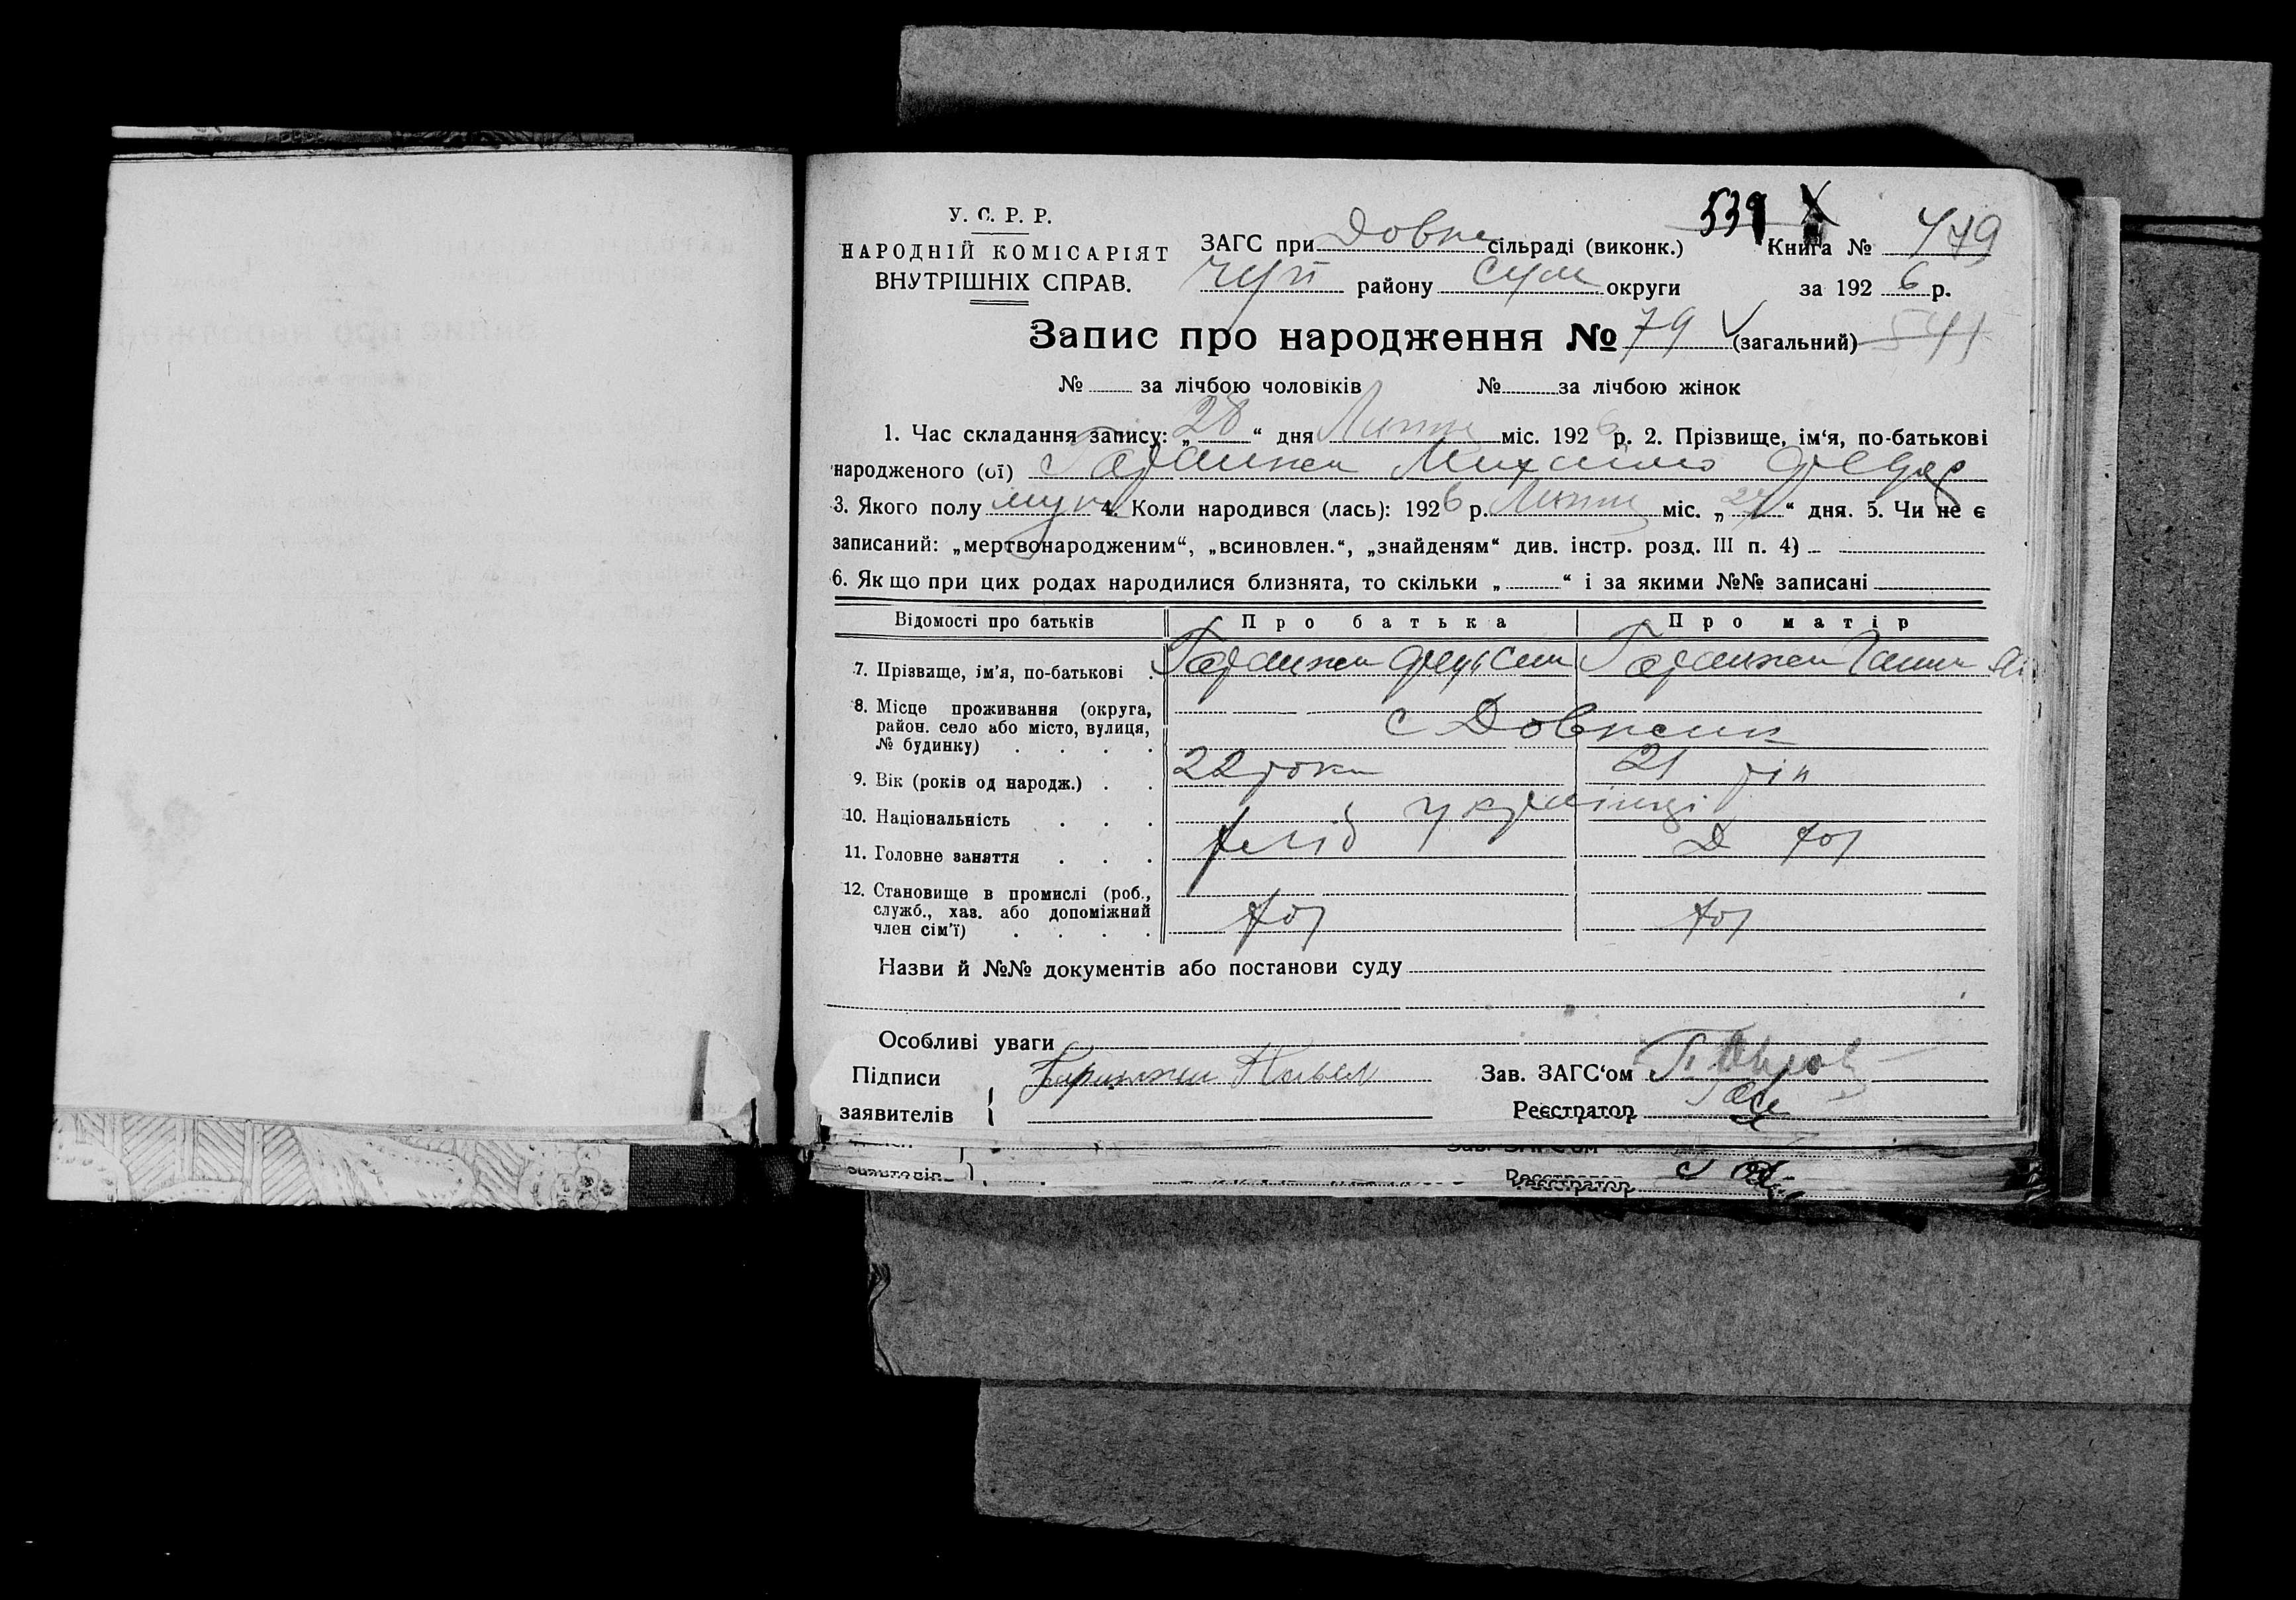 539 X
У. С. Р. Р.
НАРОДНІЙ КОМІСАРІЯТ
ВНУТРІШНІХ СПРАВ.
ЗАГС при Довж сільраді (виконк.) Книга № 479
Чуп району Сум округи за 1926 р.
Запис про народження № 79 V (загальний) 541
№ за лічбою чоловіків № за лічбою жінок
1. Час складання запису: „28“ дня Липня міс. 1926 р. 2. Прізвище, ім‘я, по-батькові
народженого (ої) Гаранжа Михайло
3. Якого полу муж 4. Коли народився (лась): 1926 р. Липня міс. „27“ дня. 5. Чи не є
записаний: „мертвонародженим“, „всиновлен.“, „знайденям“ див. інстр. розд. III п. 4)
6. Якщо при цих родах народилися близнята, то скільки „ “ і за якими №№ записані
Відомості про батьків Про батька Про матір
7. Прізвище, ім'я, по-батькові . Гаранжа Гаранжа Ганна
8. Місце проживання (округа,
район. село або місто, вулиця, с Довжик
№ будинку) . . . .
9. Вік (років од народж.) . . 22 роки 21 рік
10. Національність . . . українці
11. Головне заняття . . . хліб Д хоз
12. Становище в промислі (роб.,
служб., хаз. або допоміжний хоз хоз
член сім'ї) . . . .
Назви й №№ документів або постанови суду
Особливі уваги
Підписи Гаранжа Павел Зав. ЗАГС‘ом
заявителів Реєстратор
заявителів Реєстратор